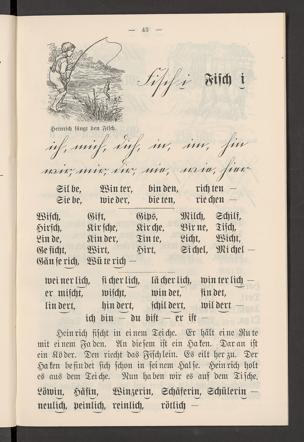 — 43 —
Fisch i Fisch i
Heinrich fängt den Fisch.
ich, mich, dich, in, im, hin
wir, mir, dir, nie, wie, hier
Sil be, Win ter, bin den, rich ten —
Sie be, wie der, bie ten, rie chen —
Wisch, Gift, Gips, Milch, Schilf,
Hirsch, Kir sche, Kir che, Tisch,
Lin de, Kin der, Tin te, Licht, Wicht,
Ge sicht, Wirt, Hirt, Sichel, Michel —
Gän se rich, Wü te rich —
wei ner lich, si cher lich, lä cher lich, win ter lich —
er wischt, wischt, win det, fin det,
lin dert, hin dert, schil dert, wil dert —
ich bin — du bist — er ist —
Heinrich fischt in einem Teiche. Er hält eine Rute
mit einem Faden. An diesem ist ein Haken. Daran ist
ein Köder. Den riecht das Fischlein. Es eilt herzu. Der
Haken befindet sich schon in seinem Halse. Heinrich holt
es aus dem Teiche. Nun haben wir es auf dem Tische.
Löwin, Häsin, Winzerin, Schäferin, Schülerin —
neulich, peinlich, reinlich, rötlich —